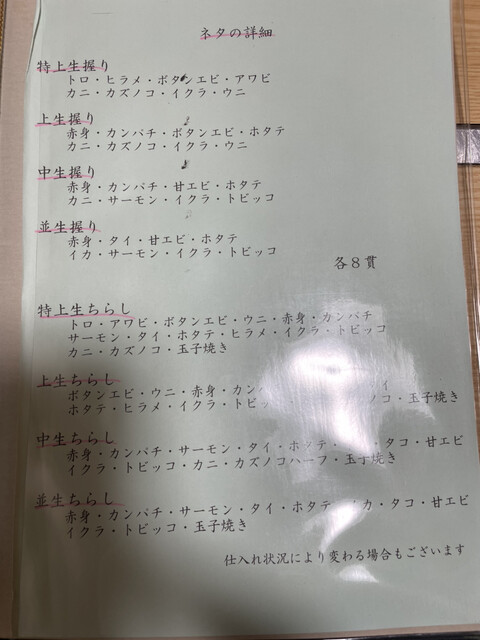 ネタの詳細
特上生握り
トロ・ヒラメ・ボタンエビ・アワビ
カニ・カズノコ・イクラ・ウニ
上生握り
赤身・カンパチ・ボタンエビ・ホタテ
カニ・カズノコ・イクラ・ウニ
中生握り
赤身・カンパチ・甘エビ・ホタテ
カニ・サーモン・イクラ・トビッコ
並生握り
赤身・タイ・甘エビ・ホタテ
イカ・サーモン・イクラ・トビッコ
各8貫
特上生ちらし
トロ・アワビ・ボタンエビ・ウニ・赤身・カンパチ
サーモン・タイ・ホタテ・ヒラメ・イクラ・トビッコ
カニ・カズノコ・玉子焼き
上生ちらし
ボタンエビ・ウニ・赤身・カン イ
ホタテ・ヒラメ・イクラ・トビッ コ・玉子焼き
中生ちらし
赤身・カンパチ・サーモン・タイ・ホタテ・ ・タコ・甘エビ
イクラ・トビッコ・カニ・カズノコハーフ・玉子焼き
並生ちらし
赤身・カンパチ・サーモン・タイ・ホタテ カ・タコ・甘エビ
イクラ・トビッコ・玉子焼き
仕入れ状況により変わる場合もございます